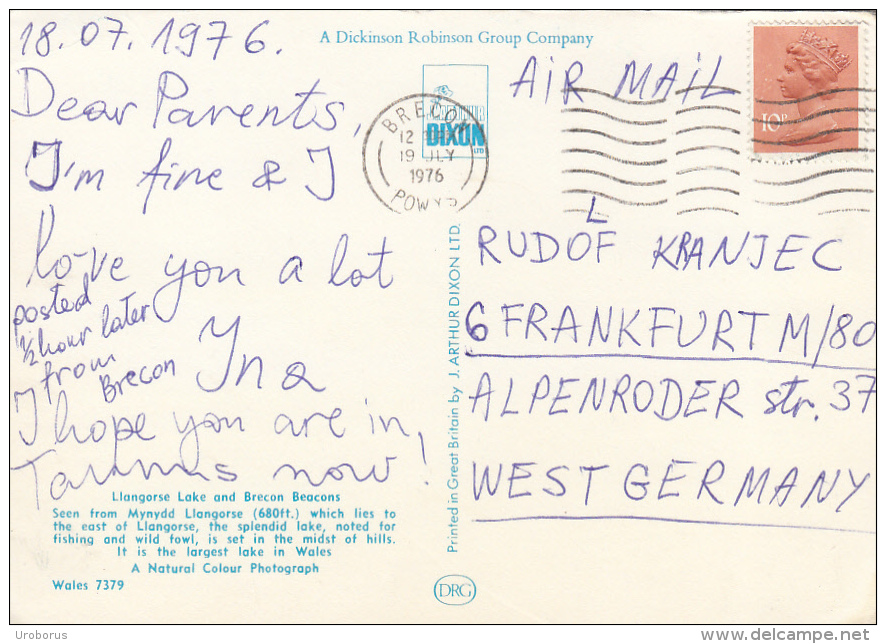 18.07.1976.
Dear Parents,
I'm fine & I
love you a lot
posted
½ hour later
from
Brecon
Ina
I hope you are in
Taunus now!
Llangorse Lake and Brecon Beacons
Seen from Mynydd Llangorse (680ft.) which lies to
the east of Llangorse, the splendid lake, noted for
fishing and wild fowl, is set in the midst of hills.
It is the largest lake in Wales
A Natural Colour Photograph
Wales 7379
A Dickinson Robinson Group Company
ARTHUR
DIXON
LTD
BRECON
12
19 JLY
1976
POWYS
10P
AIR MAIL
Printed in Great Britain by J. ARTHUR DIXON LTD.
L
RUDOF KRANJEC
6 FRANKFURT M/80
ALPENRODER str. 37
WEST GERMANY
DRG
Uroborus
www.delcampe.net